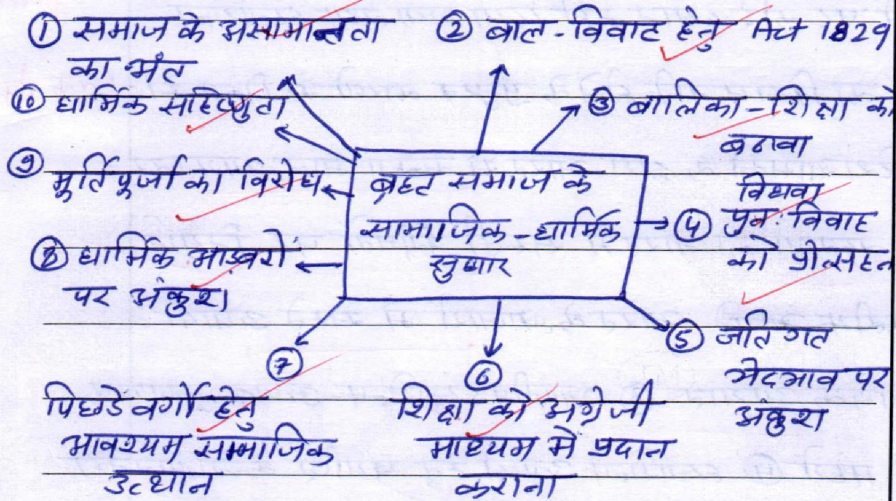 ① समाज के असामानता
का अंत
② बाल-विवाह हेतु Act 1829
③ बालिका-शिक्षा को
बढावा
④ विधवा
पुन: विवाह
को प्रोत्सहन
⑤ जति गत
भेदभाव पर
अंकुश
⑥
शिक्षा को अंग्रेजी
माध्यम मे प्रदान
कराना
⑦
पिछडे वर्गो हेतु
आवश्यम सामाजिक
उत्थान
⑧ धार्मिक आडबरो
पर अंकुश।
⑨ मुर्ति पूजा का विरोध
⑩ धार्मिक सहिष्णुता
ब्रहत समाज के
सामाजिक-धार्मिक
सुधार